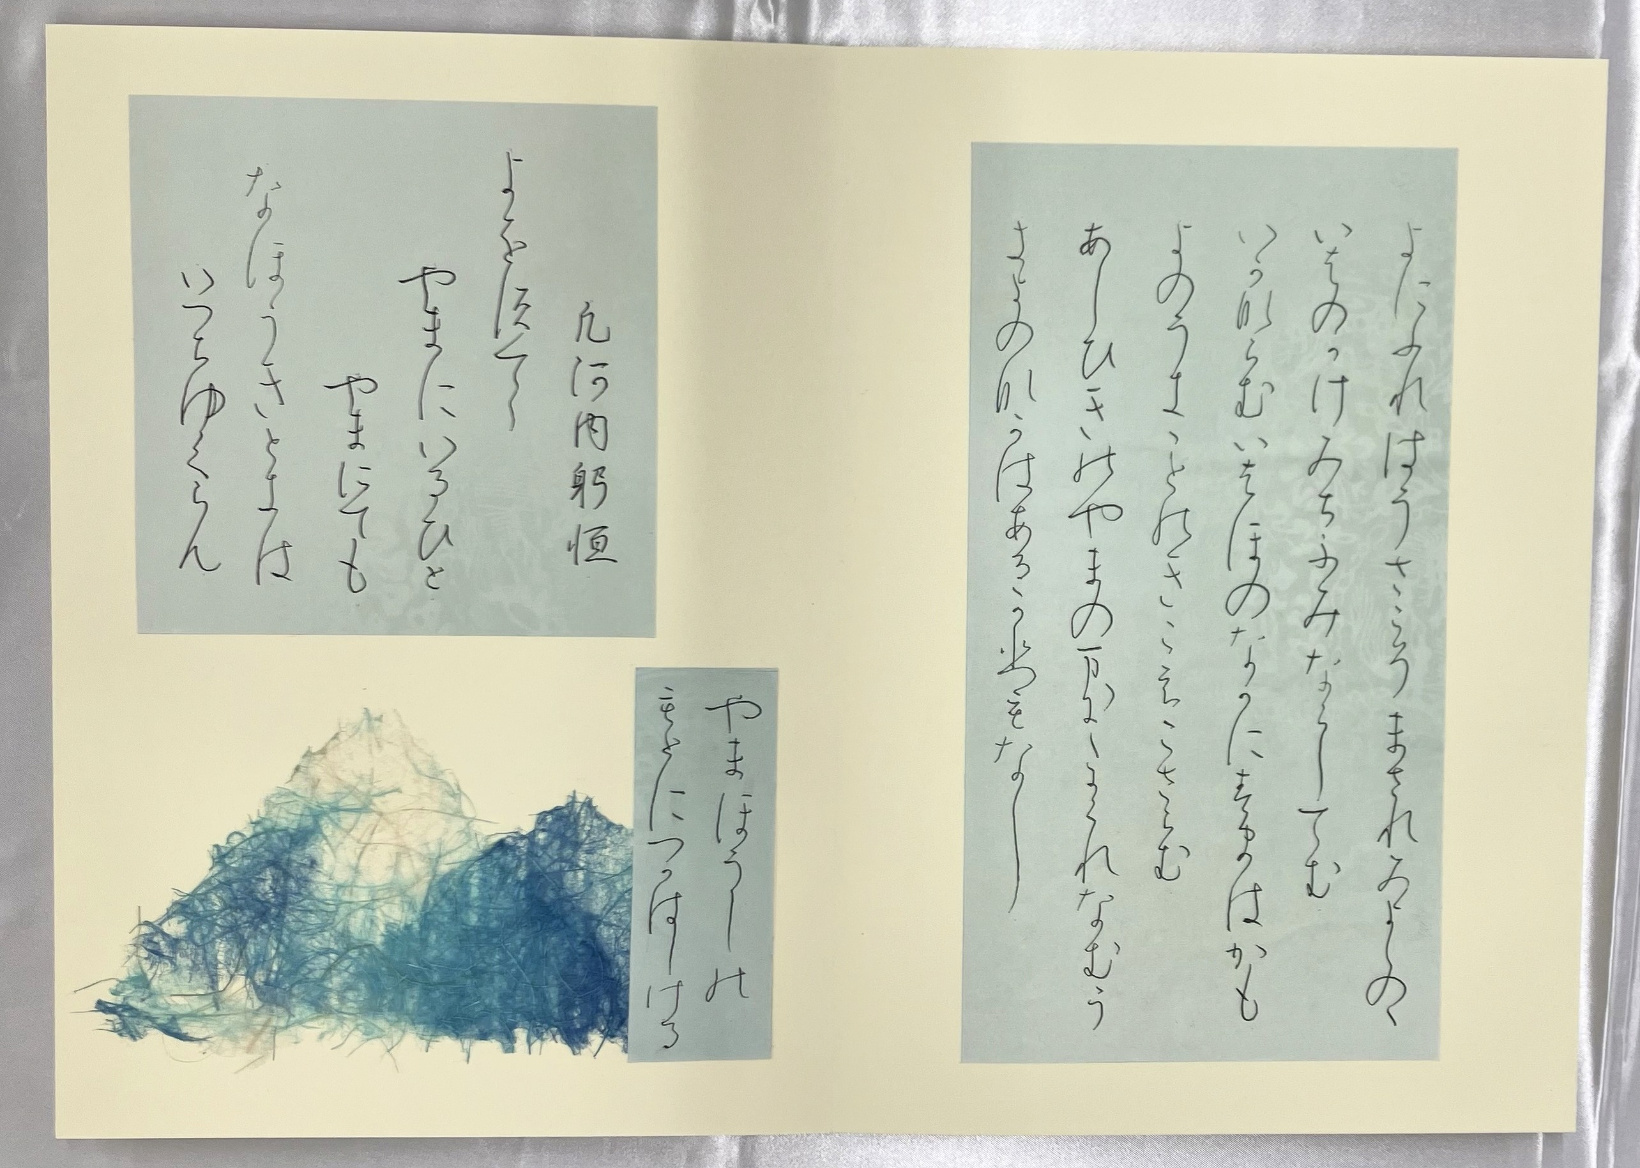 よにふれはうさこそまされみよしのゝ
いはのかけみちふみならしてむ
いかならむいはほのなかにすまはかも
よのうきことのきこえこさらむ
あしひきのやまのまに〱かくれなむう
きよのなかはあるかひもなし
やまほうしの
もとにつかはしける
凡河内躬恒
よをすてゝ
やまにいるひと
やまにても
なほうきときは
いつちゆくらん